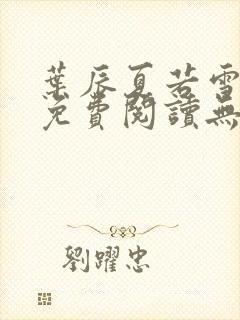 葉辰夏若雪
免費閱讀無
劉躍忠